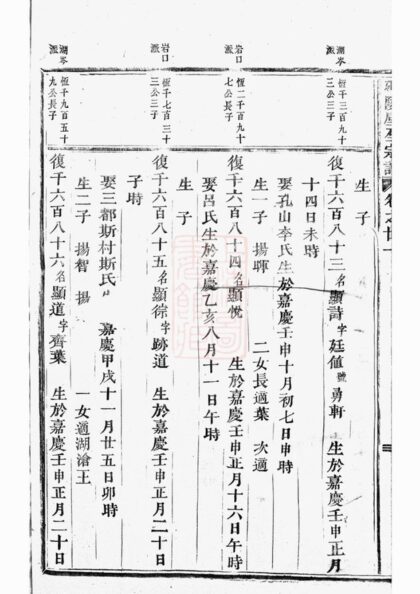 生 子
復千六百八十三名顯詩字廷値號勇軒 生於嘉慶壬申正月
十四日未時
娶孔山李氏生於嘉慶壬申十月初七日申時
生一子 揚暉 二女長適葉 次適
復千六百八十四名顯悅 生於嘉慶壬申正月十六日午時
娶呂氏生於嘉慶乙亥八月十一日午時
生 子
復千六百八十五名顯徐字跡道 生於嘉慶壬申正月二十日
子時
娶三都斯村斯氏 嘉慶甲戌十一月廿五日卯時
生二子 揚智 揚 一女適湖滄王
復千六百八十六名顯道字齊葉 生於嘉慶壬申正月二十日
湖岑派
恆千三百九十三公三子
岩口派
恆二千九百九十七公長子
岩口派
恆千七百三十三公三子
湖岑派
恆千九百五十九公長子